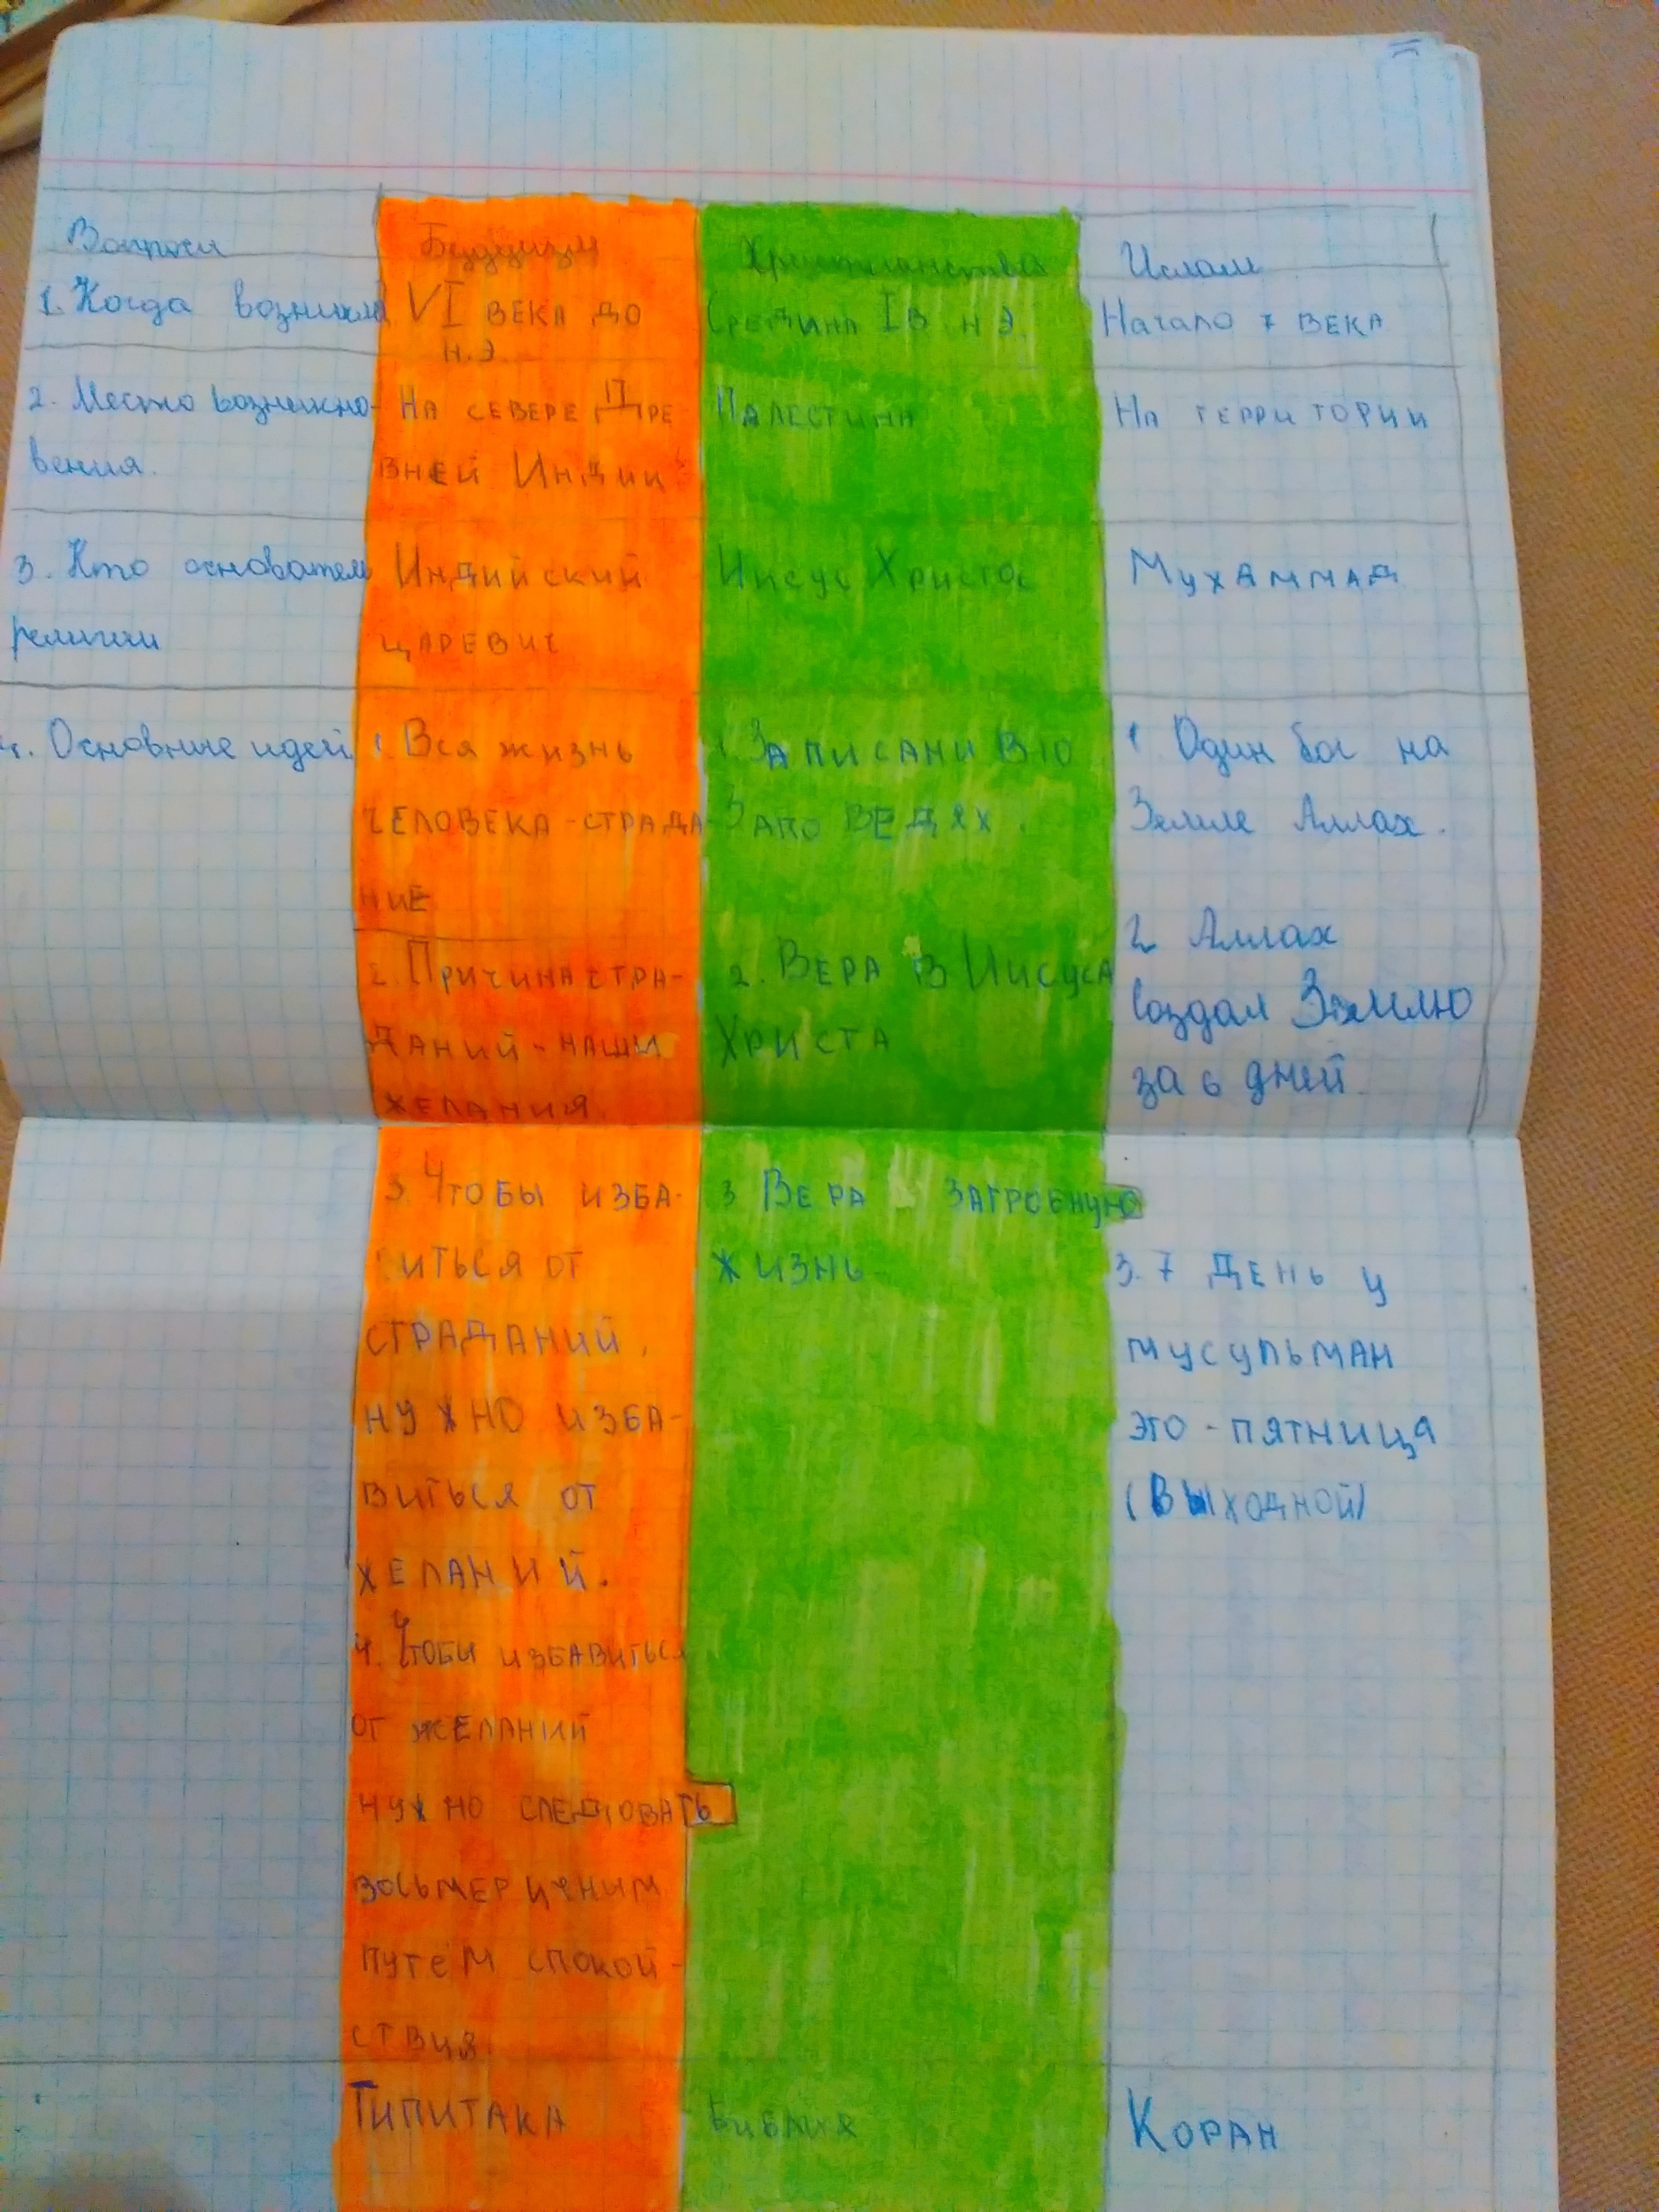 Вопросы
Буддизм
Христианства
Ислам
1. Когда возникла
VI ВЕКА ДО
Н.Э.
СРЕДИНА I В. Н.Э.
НАЧАЛО 7 ВЕКА
2. Место возникно-
вения.
НА СЕВЕРЕ ДРЕ
ВНЕЙ ИНДИИ
ПАЛЕСТИНА
НА ТЕРРИТОРИИ
3. Кто основатель
религии
ИНДИЙСКИЙ
ЦАРЕВИЧ
ИИСУС ХРИСТОС
МУХАММАД
4. Основные идей
1. ВСЯ ЖИЗНЬ
ЧЕЛОВЕКА - СТРАДА
НИЕ
2. ПРИЧИНА СТРА-
ДАНИЙ - НАШИ
ЖЕЛАНИЯ.
3. ЧТОБЫ ИЗБА-
ВИТЬСЯ ОТ
СТРАДАНИЙ,
НУЖНО ИЗБА-
ВИТЬСЯ ОТ
ЖЕЛАНИЙ.
4. ЧТОБЫ ИЗБАВИТЬСЯ
ОТ ЖЕЛАНИЙ
НУЖНО СЛЕДОВАТЬ
ВОСЬМЕРИЧНИМ
ПУТЕМ СПОКОЙ-
СТВИЯ.
1. ЗАПИСАНИ В 10
ЗАПОВЕДЯХ.
2. ВЕРА В ИИСУСА
ХРИСТА
3 ВЕРА ЗАГРОБНУЮ
ЖИЗНЬ
1 Один бог на
Земле Аллах.
2 Аллах
создал Землю
за 6 дней.
3. 7 ДЕНЬ У
МУСУЛЬМАН
ЭТО - ПЯТНИЦА
(ВЫХОДНОЙ)
ТИПИТАКА
БИБЛИЯ
КОРАН